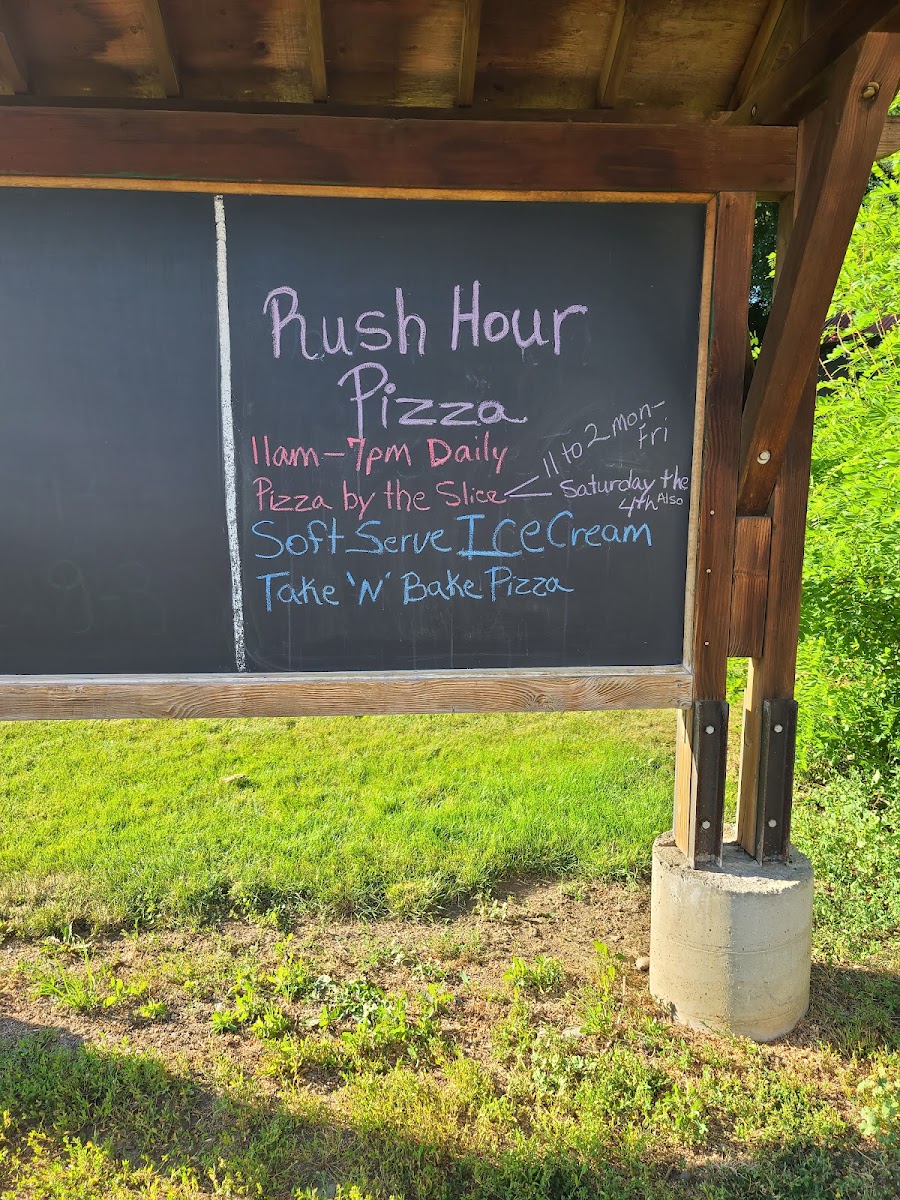 Rush Hour
Pizza
11am-7pm Daily
Pizza by the Slice < 11 to 2 mon-
Fri
Saturday the
4th Also
Soft Serve Ice Cream
Take 'N' Bake Pizza